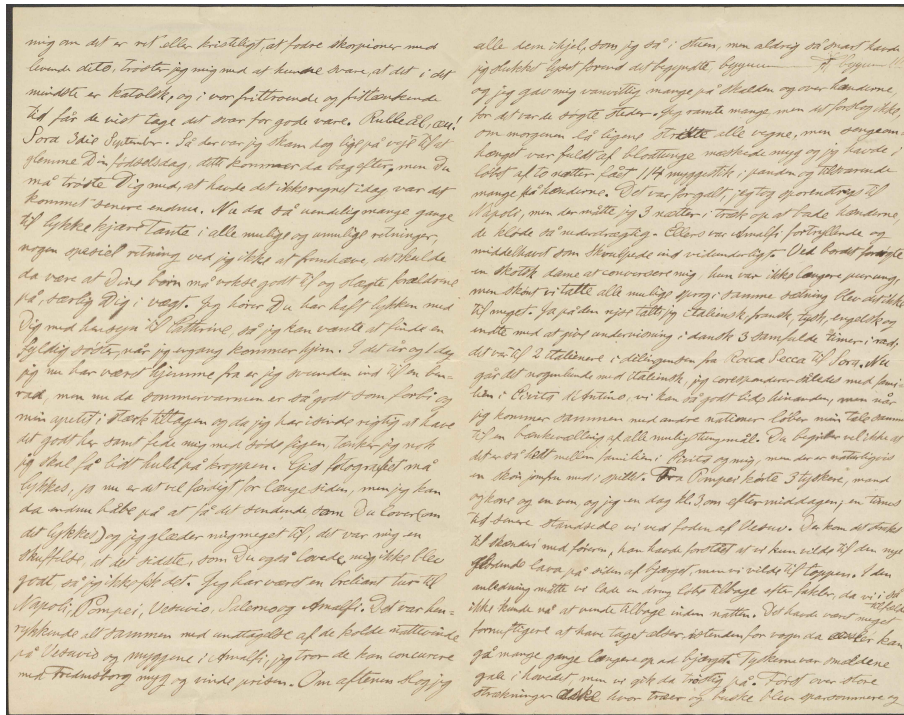 mig om det er ret eller kristeligt, at fodre skorpioner med
levende dito, trøster jeg mig med at kunne svare, at det i det
mindste er katolsk, og i vor frittroende og fristænkende
tid får de vist tage det svar for gode varer.
Sora 3die September. Så der var jeg skam dog lige på veje til at
glemme Din fødselsdag, dette kommer da bag efter, men Du
må trøste Dig med, at havde det ikke regnet idag var det
kommet senere endnu. Nu da så uendelig mange gange
til lykke kjære Tante i alle mulige og umulige retninger,
nogen speciel retning ved jeg ikke at fremhæve, det skulde
da være at Dine børn må vokse godt til og slægte forældrene
på, særlig Dig i vægt. Jeg hører Du har haft lykken med
Dig med hensyn til Cathrine så jeg kan vænte at finde en
fyldig søster, når jeg engang kommer hjem. I det år og 1 dag
jeg nu har været hjemme fra er jeg svunden ind til en ben-
rad, men nu da sommervarmen er så godt som forbi og
min apetit i stærk tiltagen og da jeg har isinde rigtig at have
det godt her samt fede mig med søde figen, tænker jeg nok
jeg skal få lidt huld på kroppen. Gid fotografiet må
lykkes, jo nu er det vel færdigt for længe siden, men jeg kan
da endnu håbe på at få det sendende som Du lover (om
det lykkes) og jeg glæder mig meget til, det var mig en
skuffelse, at det sidste, som Du også lovede mig ikke blev
godt så jeg ikke fik det. Jeg har været en breliant tur til
Napoli, Pompei, Vesuvio, Salerno og Amalfi. Det var hen-
rykkende alt sammen med undtagelse af de kolde nattevinde
på Vesuvio og myggene i Amalfi, jeg tror de kan concurere
med Fredensborg myg og vinde prisen. Om aftenen slog jeg
alle dem ihjel, som jeg så i stuen, men aldrig så snart havde
jeg slukket lyset førend det begyndte,
og jeg gav mig vanvittig mange på skallen og over hænderne,
for at var de søgte steder. Jeg ramte mange men det forslog ikke,
om morgenen lå ligene strøtte alle vegne, men sengeom-
hænget var fuldt af blodtunge mæskede myg og jeg havde i
løbet af to nætter fået 14 myggestik i panden og tilsvarende
mange på hænderne. Det var for galt, jeg tog sporenstregs til
Napoli, men der måtte jeg 3 nætter i træk op at bade hænderne,
de kløde så nederdrægtig. Ellers var Amalfi fortryllende og
middelhavet som skvulpede ind vidunderligt. Ved bordet forsøgte
en skotsk dame at conversere mig, hun var ikke længere purung,
men skønt vi talte alle mulige sprog i samme sætning blev det ikke
til meget. Ja på den rejse talte jeg italiensk, fransk, tysk, engelsk og
endte med at give undervisning i dansk 3 samfulde timer i rad,
det var til 2 italienere i diligensen fra Rocca Secca til Sora. Nu
går det nogenlunde med italiensk, jeg corsponderer således med fami-
lien i Civita d'Antino, vi kan så godt lide hinanden, men når
jeg kommer sammen med andre nationer løber min tale sammen
til en bænkevælling af alle mulige tungemål. Du begriber vel ikke at
det er så helt mellem familien i Civita og mig, men der er naturligvis
en skøn jomfru med i spillet. Fra Pompei kørte 3 tyskere, mand
og kone og en ven og jeg en dag kl. 3 om eftermiddagen, en times
tid senere standsede vi ved foden af Vesuv. Der kom det straks
til skænderi med føreren, han havde forstået at vi kun vilde til den nye
glødende lava på siden af bjærget, men vi vilde til toppen. I den
anledning måtte vi lade en dreng løbe tilbage efter fakler, da vi i så tilfælde
ikke kunde nå at vende tilbage inden natten. Det havde været meget
fornuftigere at have taget æsler, istedenfor vogn da æsler kan
gå mange gange længere op ad bjærget. Tyskerne var smældene
gale i hovedet, men vi gik da trøstig på. Først over store
strækninger hvor træer og buske blev sparsommere og